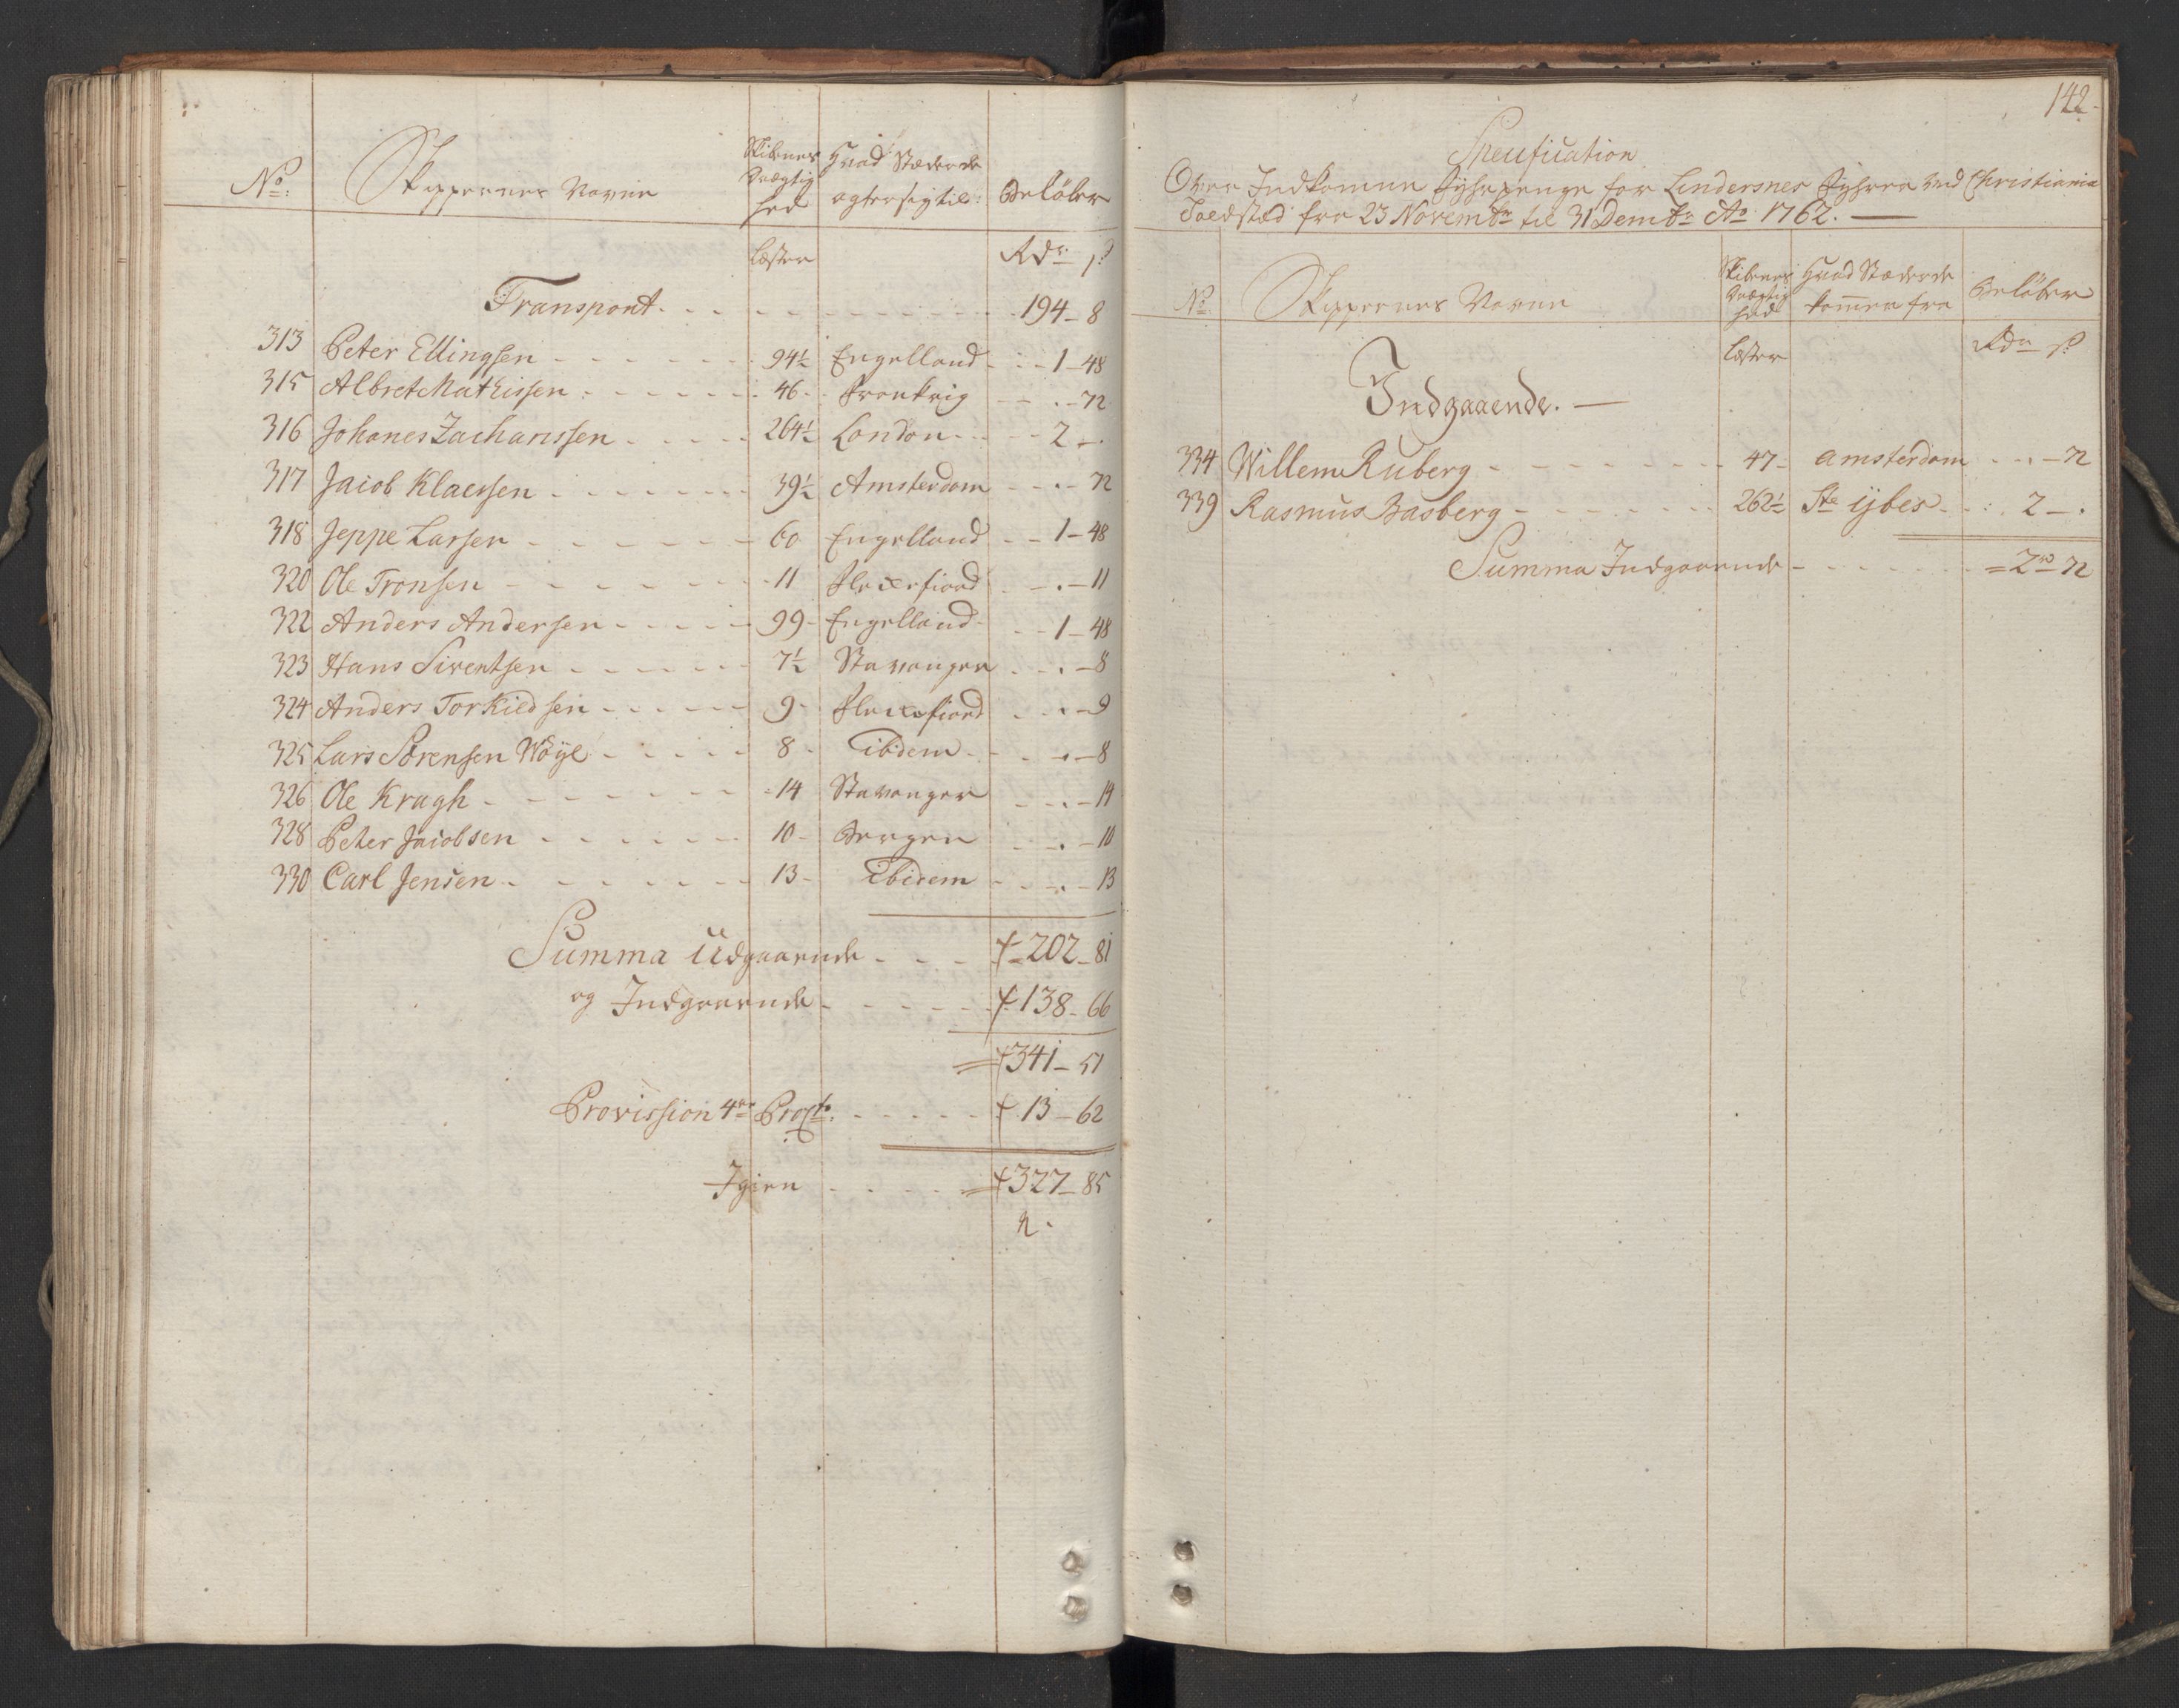 No: Skippernes Navne Skibenes Drægtig hed Hvad Stæder de agter sig til: Beløber
Læster Rdr s
Transport 194 - 8
313 Peter Ellingsen 94½ Engelland 1 - 48
315 Albret Mathissen 46 Frankrig . - 72
316 Johanes Zacharissen 264½ London 2 - .
317 Jacob Klaessen 39½ Amsterdam . - 72
318 Jeppe Larsen 60 Engelland 1 - 48
320 Ole Tronsen 11 Flechefiord . - 11
322 Anders Andersen 99 Engelland 1 - 48
323 Hans Sivertsen 7½ Stavanger . - 8
324 Anders Torkildsen 9 Flechefiord . - 9
325 Lars Sörensen Wöye 8 ibidem . - 8
326 Ole Kragh 14 Stavanger . - 14
328 Peter Jacobsen 10 Bergen . - 10
330 Carl Jensen 13 Ibidem . - 13
Summa Udgaaende 202 - 81
og Indgaaende 138 - 66
341 - 51
Provission 4re Procto: 13 - 62
Igien 327 - 85
142
Specification
Over Indkomne Fyhrpenge for Lindersnes Fyhrer ved Christiania
Toldsted fra 23 Novembr til 31 Dembr Ao 1762.
No: Skippernes Navne Skibenes Drægtig hed Hvad Stæder de kommer fra Beløber
Læster Rdr s
Indgaaende.
334 Willem Ruberg 47 Amsterdam . - 72
339 Rasmus Basberg 262½ Ste ÿbes 2 - .
Summa Indgaaende 2rd 72